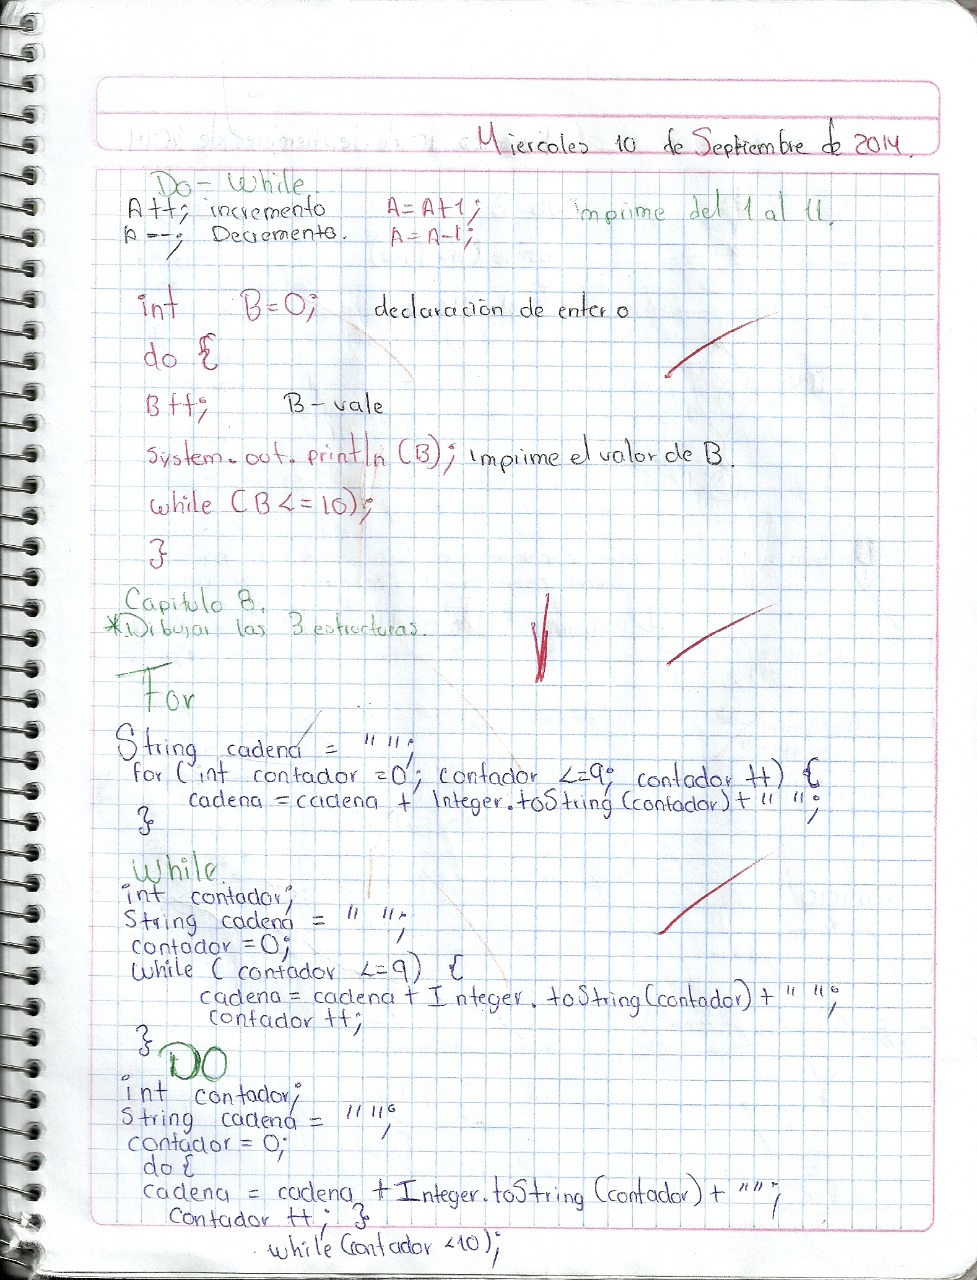 Miercoles 10 de Septiembre de 2014.
Do-While.
A++; incremento A=A+1; imprime del 1 al 11.
A--; Decremento. A=A-1;
int B=0; declaración de entero
do {
B++; B-vale
system.out.println(B); imprime el valor de B.
while (B<=10);
}
Capitulo 8.
*Dibujar las 3 estructuras.
For
String cadena = " ";
for (int contador =0; contador <=9; contador ++) {
cadena = cadena + Integer.toString(contador)+" ";
}
While
int contador;
String cadena = " ";
contador =0;
while ( contador <=9) {
cadena = cadena + Integer.toString(contador) + " ";
contador ++;
}
DO
int contador;
String cadena = " ";
contador = 0;
do {
cadena = cadena + Integer.toString (contador) + "";
contador ++; }
while (contador <10);